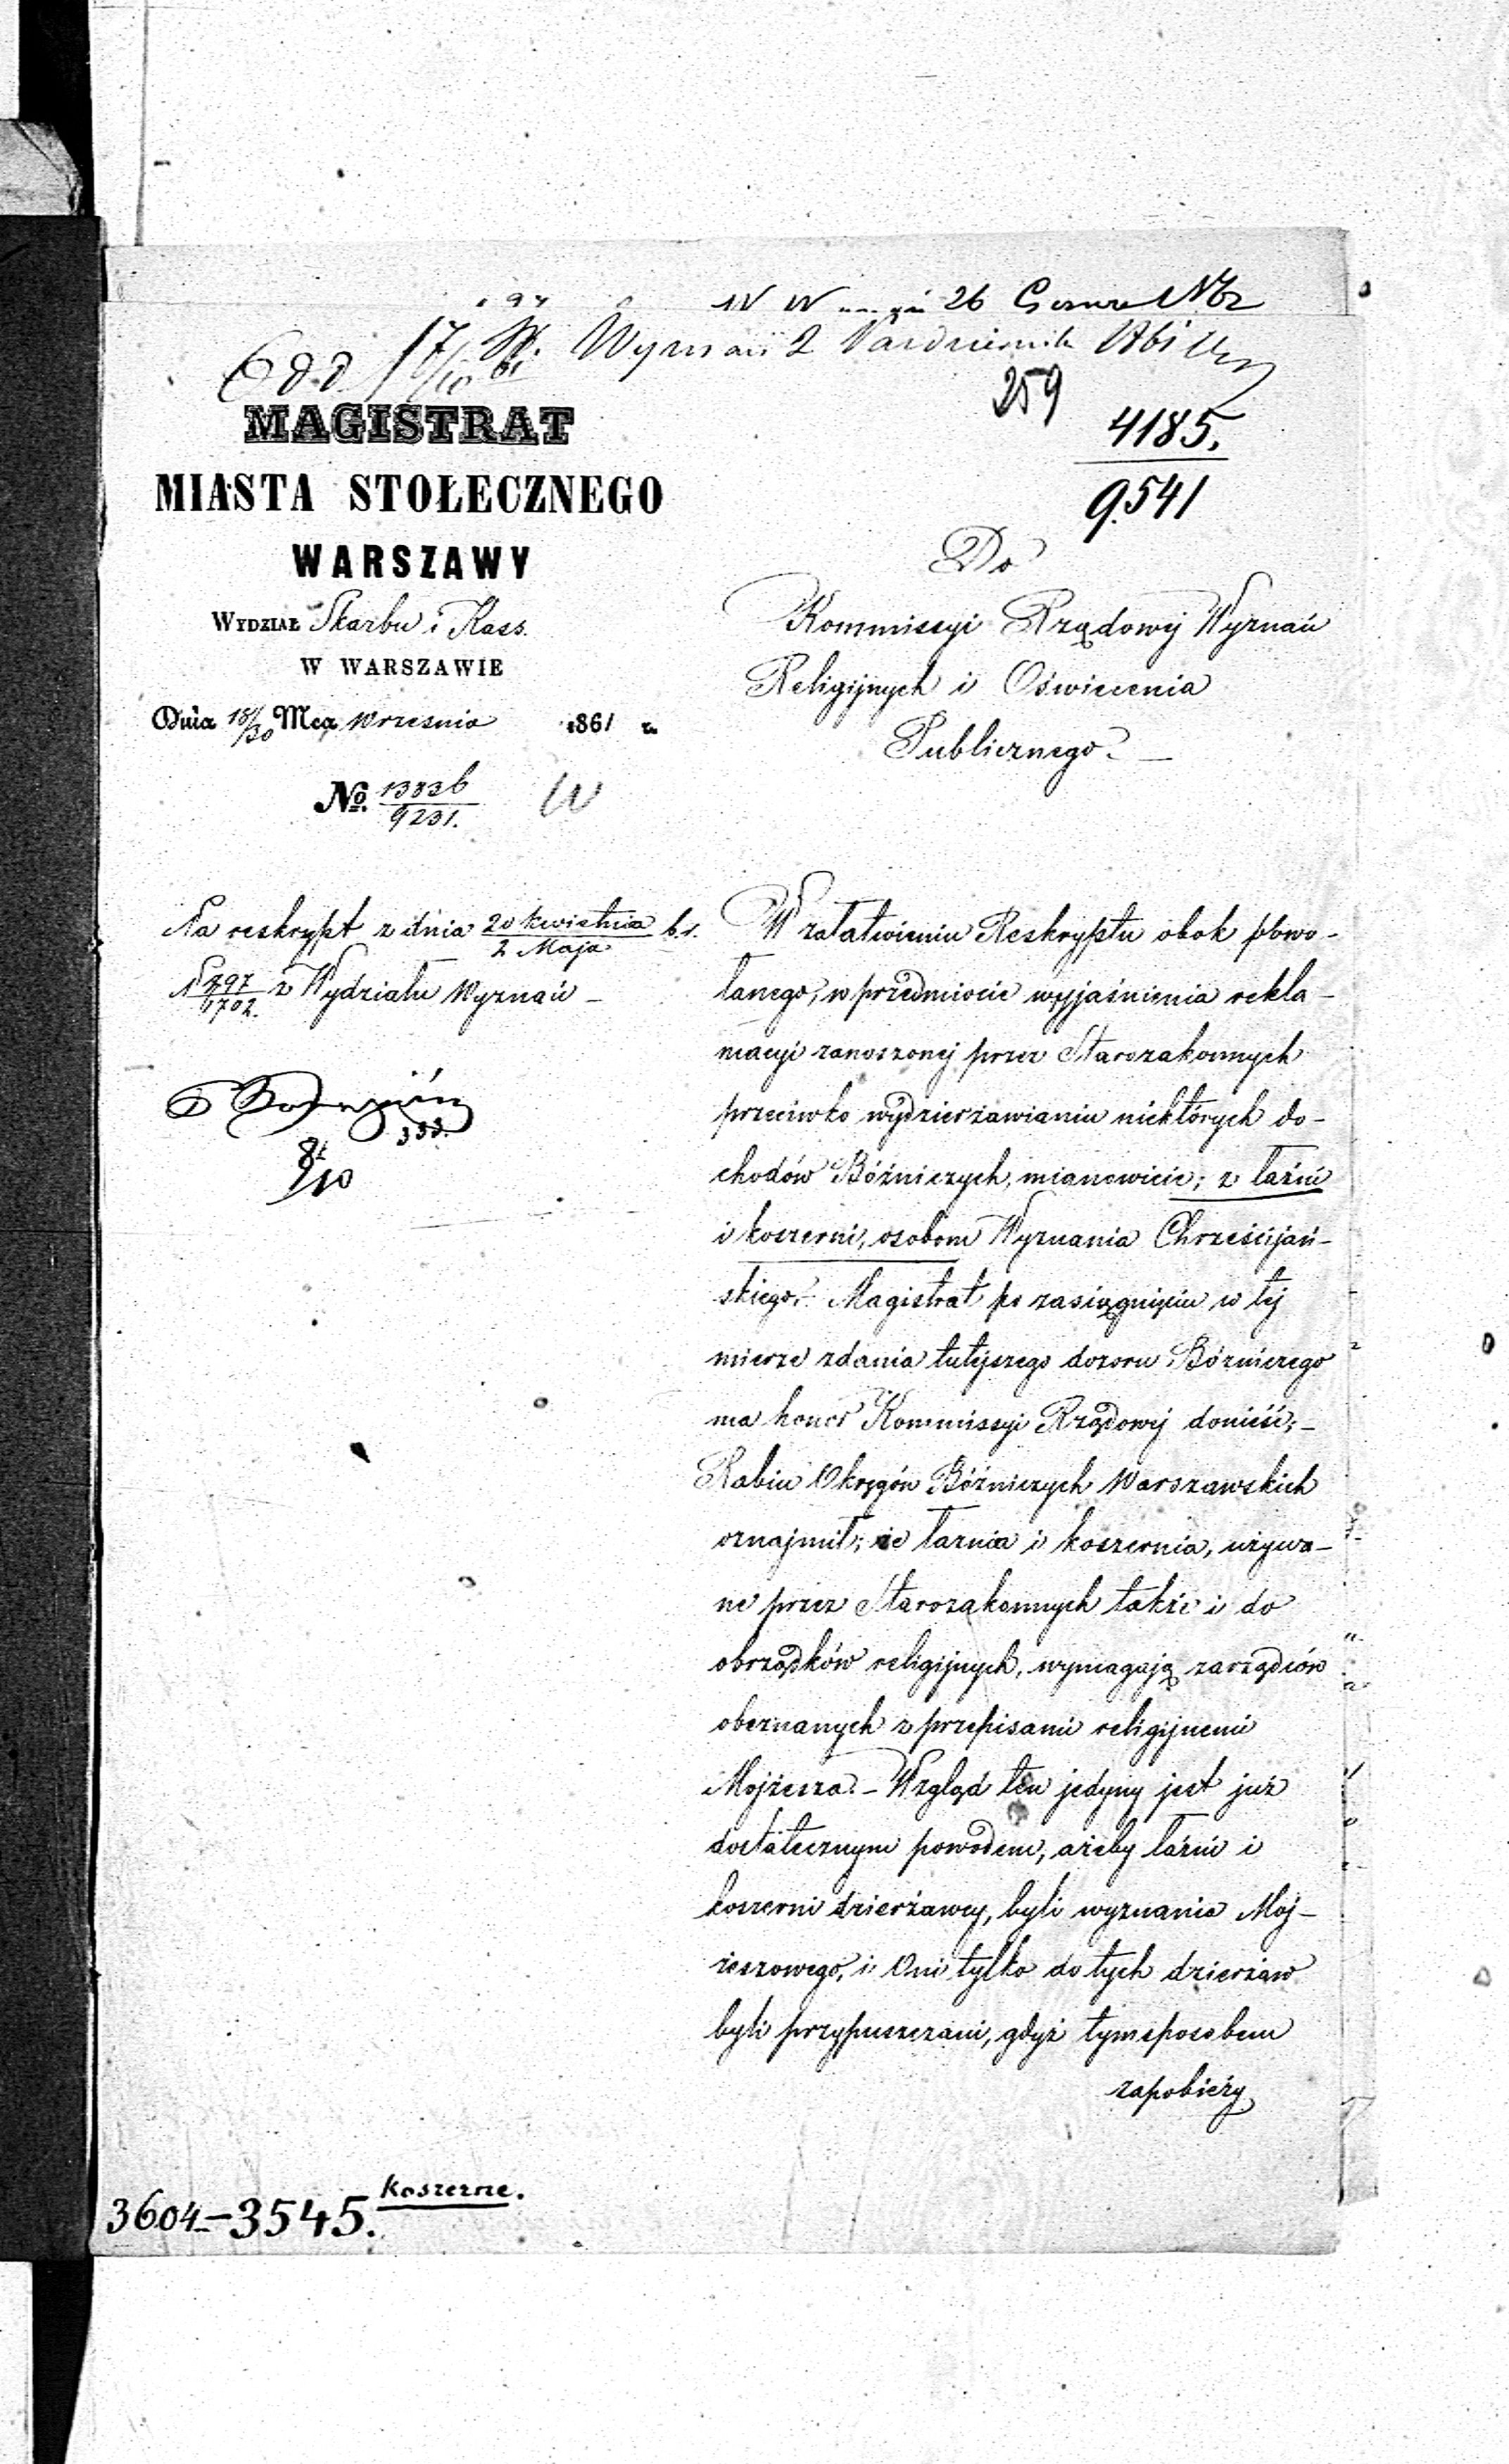 26
Wyznań 2 Października
259
4185.
9541
MAGISTRAT
MIASTA STOŁECZNEGO
WARSZAWY
WYDZIAŁ Skarbu i Kass.
W WARSZAWIE
Dnia 18/30 Mca Września 1861 r.
No. 13836/9231.
W
Do
Kommissyi Rządowej Wyznań
Religijnych i Oświecenia
Publicznego. —
Na reskrypt z dnia 20 kwietnia/2 Maja b.r.
N 797/1702. z Wydziału Wyznań —
W załatwieniu Reskryptu obok powo-
łanego, w przedmiocie wyjaśnienia rekla-
macyi zanoszonej przez Starozakonnych
przeciwko wydzierżawianiu niektórych do-
chodów Bóźniczych, mianowicie; z łaźni
i koszerni, osobom Wyznania Chrześcijań-
skiego. Magistrat po zasiągnięciu w tej
mierze zdania tutejszego dozoru Bóżniczego
ma honor Kommissyi Rządowej donieść; —
Rabin Okręgów Bóźniczych Warszawskich
oznajmił; że łaznia i koszernia, używa-
ne przez Starozakonnych także i do
obrządków religijnych, wymagają zarządców
obeznanych z przepisami religijnemi
Mojżesza. — Wzgląd ten jedyny jest już
dostatecznym powodem, ażeby łaźni i
koszerni dzierżawcy, byli wyznania Moj-
żeszowego, i Oni tylko do tych dzierżaw
byli przypuszczani, gdyż tym sposobem
zapobieży
8/10
3604 - 3545. Koszerne.